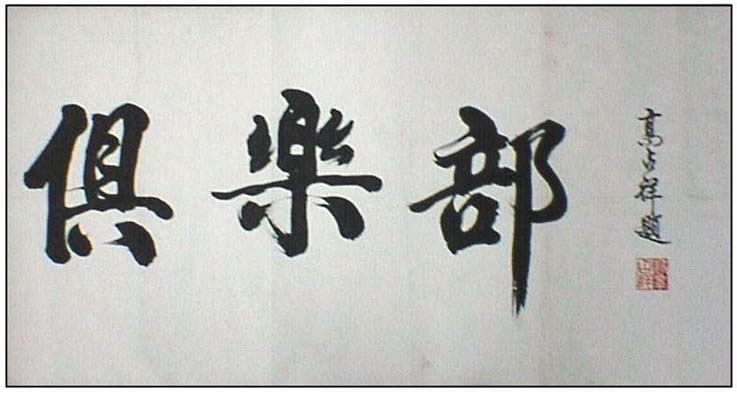 俱樂部
高占祥題